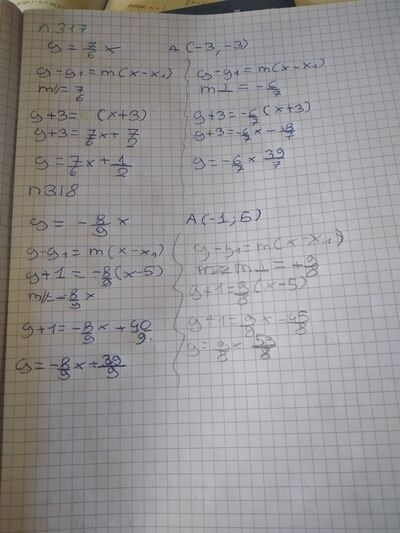 n 317
y = 7/6 x A(-3,-3)
y-y1 = m(x-x1)
m// = 7/6
y+3 = (x+3)
y+3 = 7/6 x + 7/2
y = 7/6 x + 1/2
y-y1 = m(x-x1)
m⊥ = -6/7
y+3 = -6/7 (x+3)
y+3 = -6/7 x - 18/7
y = -6/7 x 39/7
n 318
y = -8/9 x A(-1; 5)
y-y1 = m(x-x1)
y+1 = -8/9 (x-5)
m// = -8/9 x
y+1 = -8/9 x + 40/9
y = -8/9 x + 39/9
y-y1 = m(x-x1)
m⊥ = +9/8
y+1 = 9/8 (x-5)
y+1 = 9/8 x - 45/8
y = 9/8 x 53/8